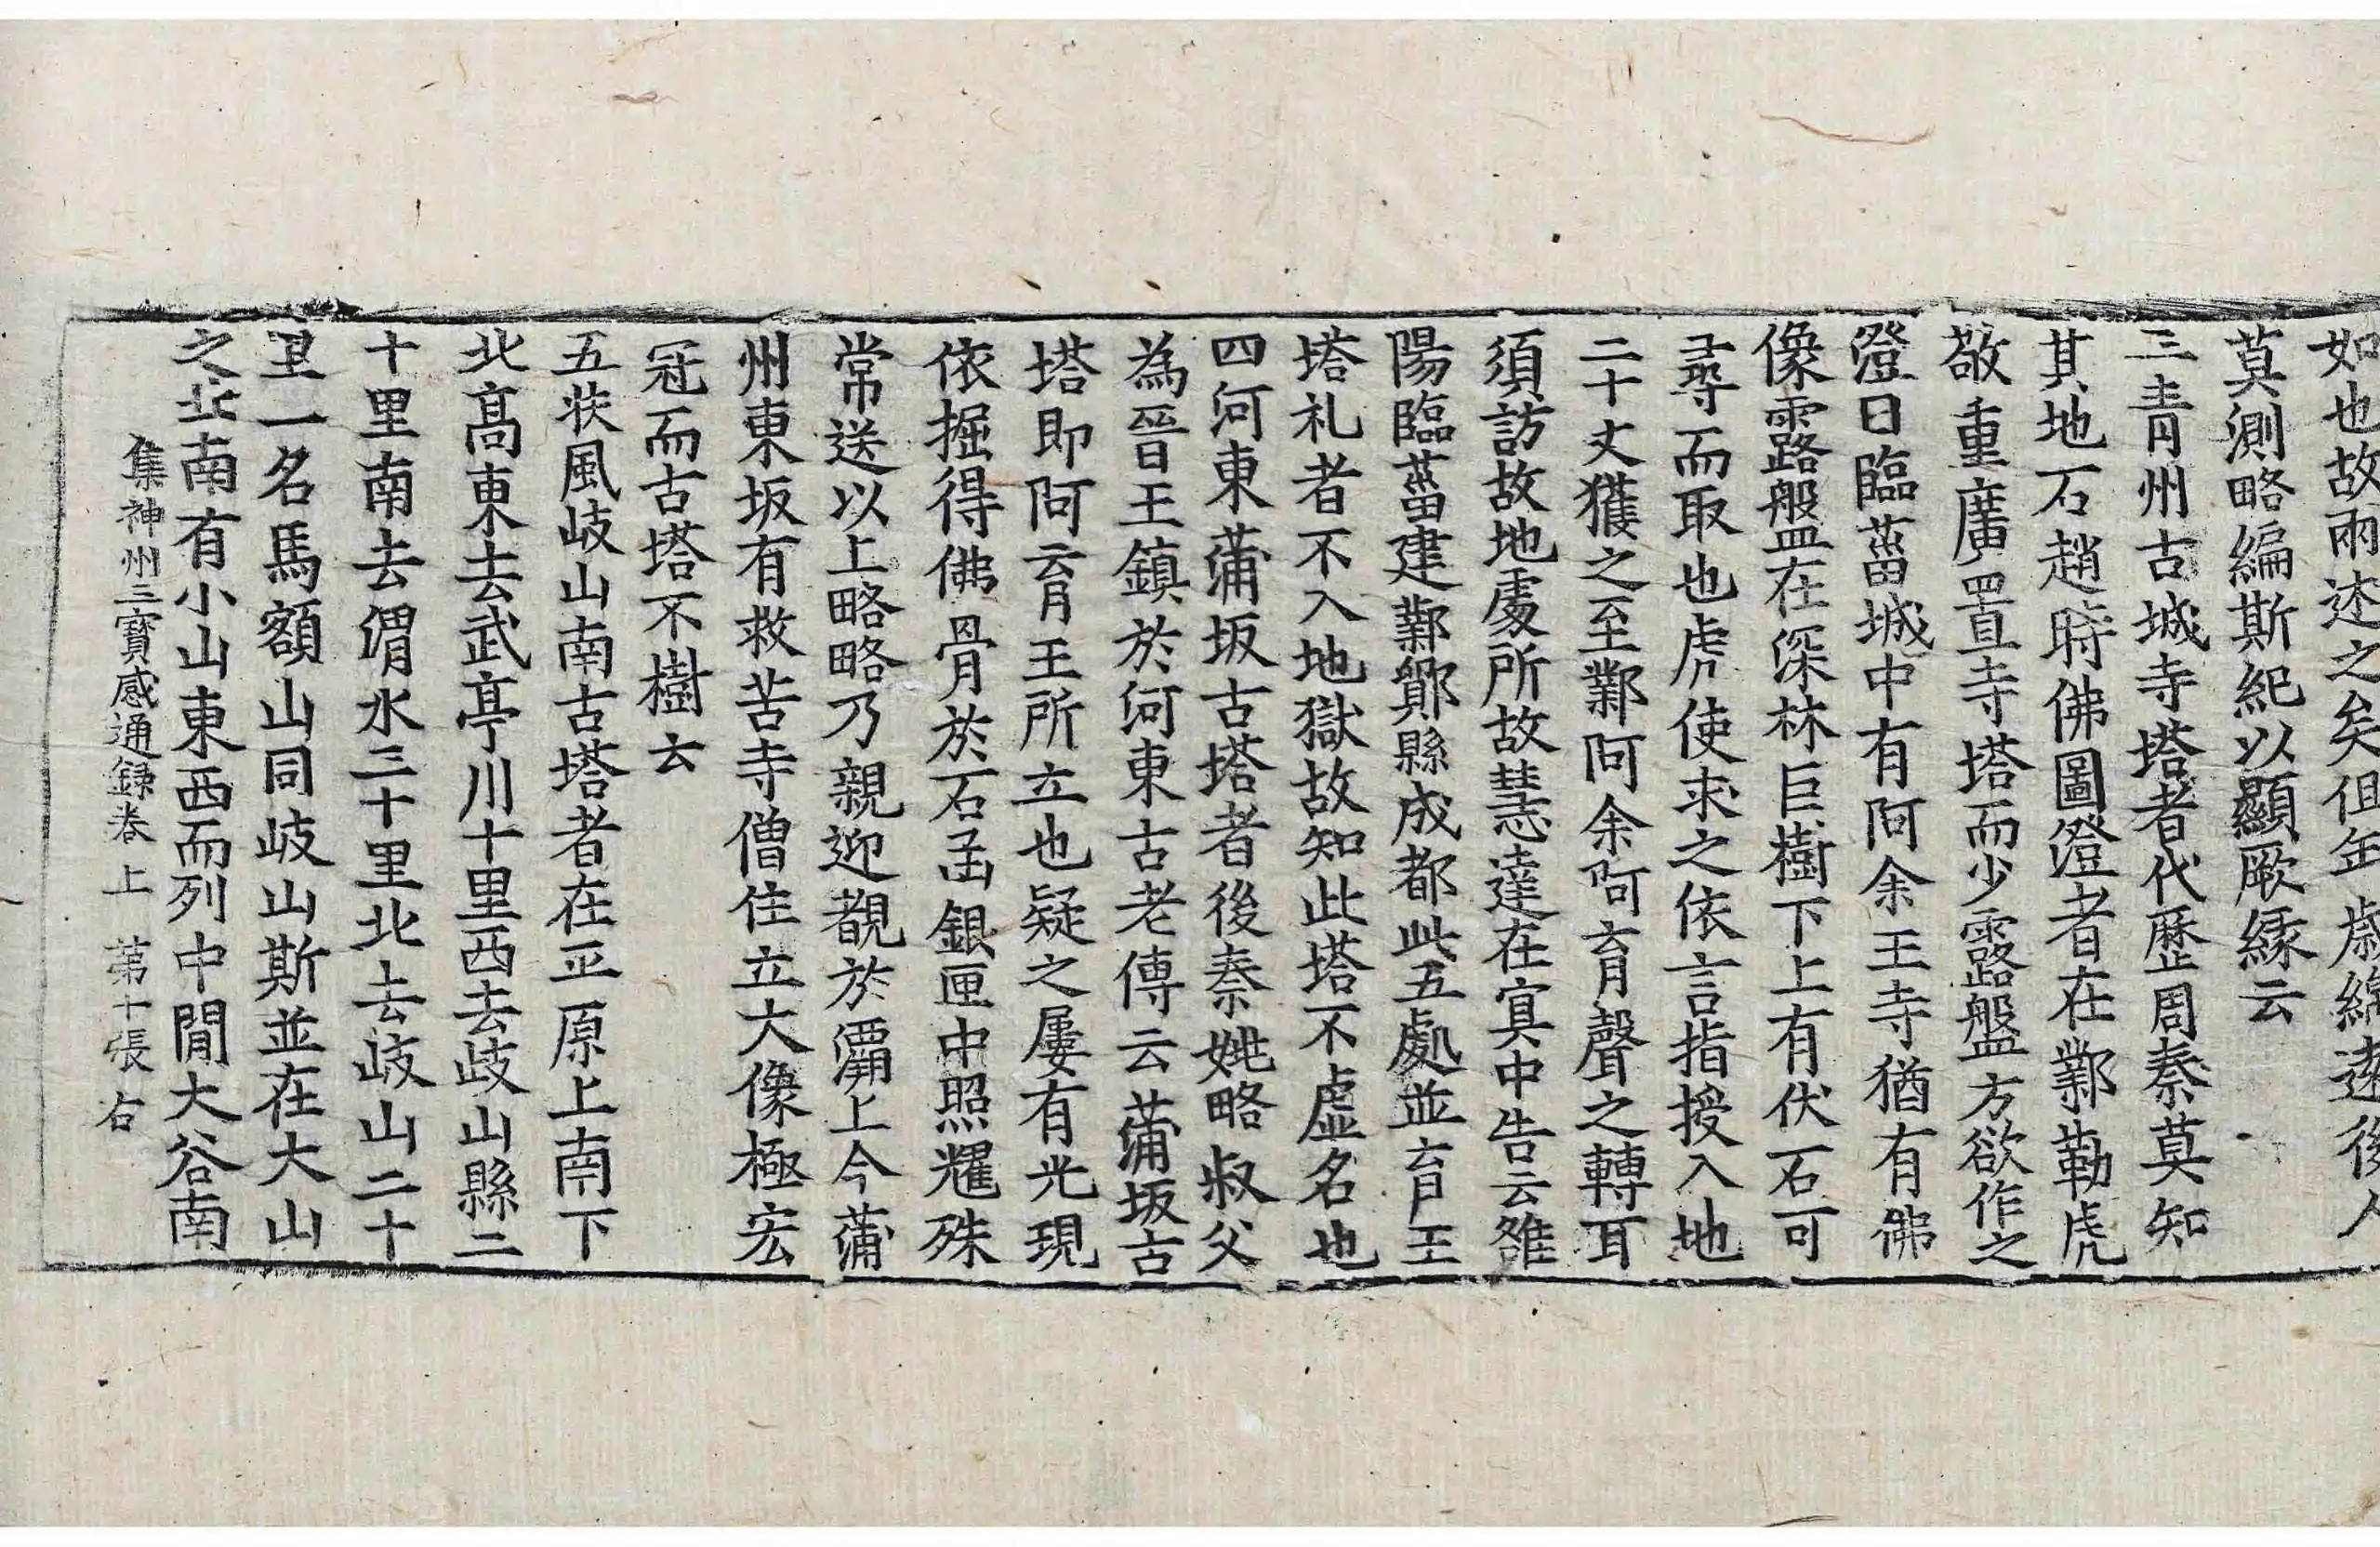 如也故兩述之矣但年歲綿遠後人
莫測略編斯紀以顯厥緣云
三青州古城寺塔者代歷周秦莫知
其地石趙時佛圖澄者在鄴勒虎
敬重廣置寺塔而少露盤方欲作之
澄曰臨菑城中有阿余王寺猶有佛
像露盤在深林巨樹下上有伏石可
尋而取也虎使求之依言指授入地
二十丈獲之至鄴阿余阿育聲之轉耳
須訪故地處所故慧達在寘中告云雒
陽臨菑建鄴鄮縣成都此五處並育王
塔礼者不入地獄故知此塔不虛名也
四河東蒲坂古塔者後秦姚略叔父
為晉王鎮於河東古老傳云蒲坂古
塔即阿育王所立也疑之屢有光現
依掘得佛骨於石函銀匣中照耀殊
常送以上略略乃親迎覩於灞上今蒲
州東坂有救苦寺僧住立大像極宏
冠而古塔不樹云
五扶風岐山南古塔者在平原上南下
北高東去武亭川十里西去岐山縣二
十里南去渭水三十里北去岐山二十
里一名馬額山同岐山斯並在大山
之北南有小山東西而列中間大谷南
集神州三寶感通録卷上　第十張　右